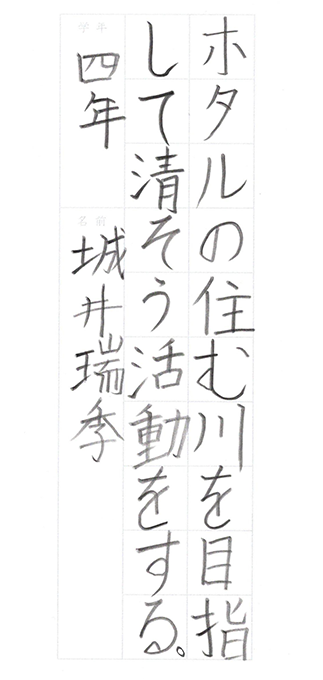 ホタルの住む川を目指
して清そう活動をする。
学年
四年
名前
城井瑞季